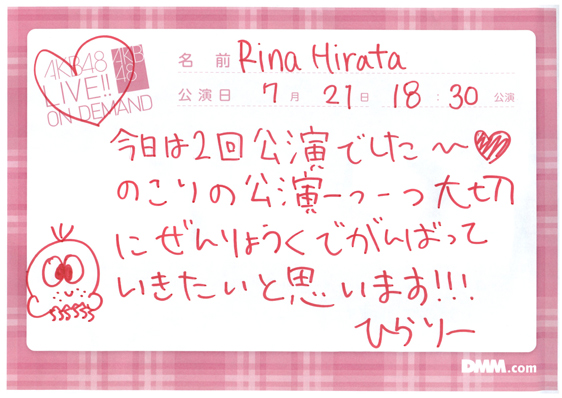 AKB48
LIVE!!
ON DEMAND
AKB
48
名前 Rina Hirata
公演日 7月 21日 18:30 公演
今日は2回公演でした〜♥
のこりの公演一つ一つ大切
にぜんりょうくでがんばって
いきたいと思います!!!
ひらりー
DMM.com